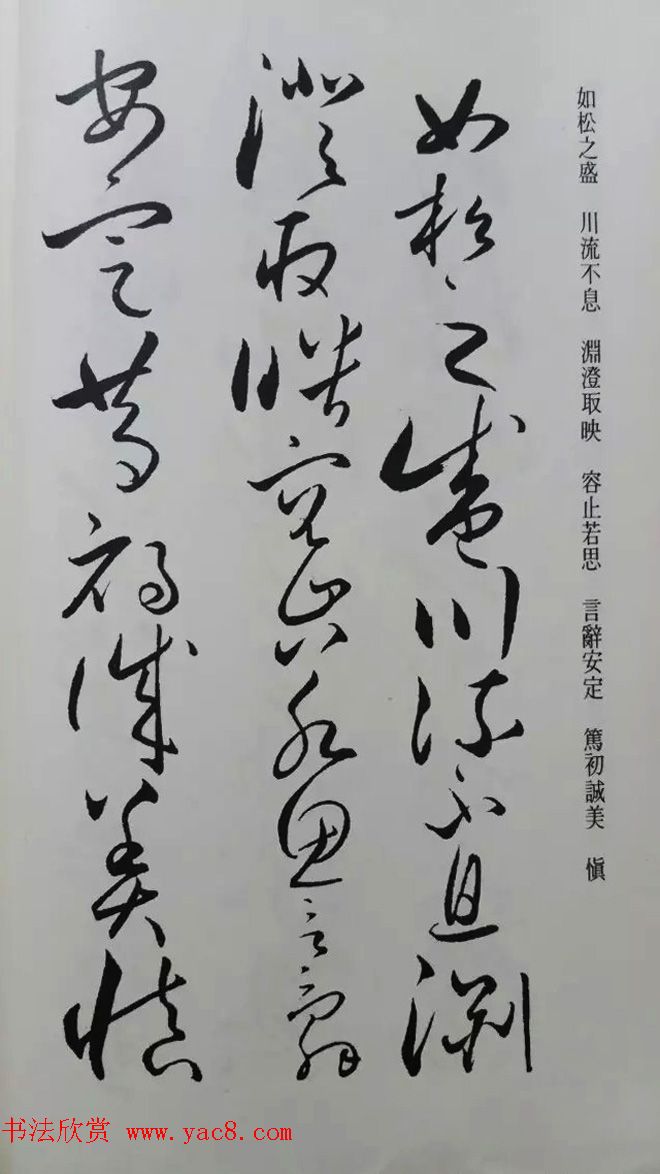 如松之盛 川流不息 淵澄取映 容止若思 言辭安定 篤初誠美 慎
如松之盛川流不息淵
澄取映容止若思言辭
安定篤初誠美慎
书法欣赏 www.yac8.com